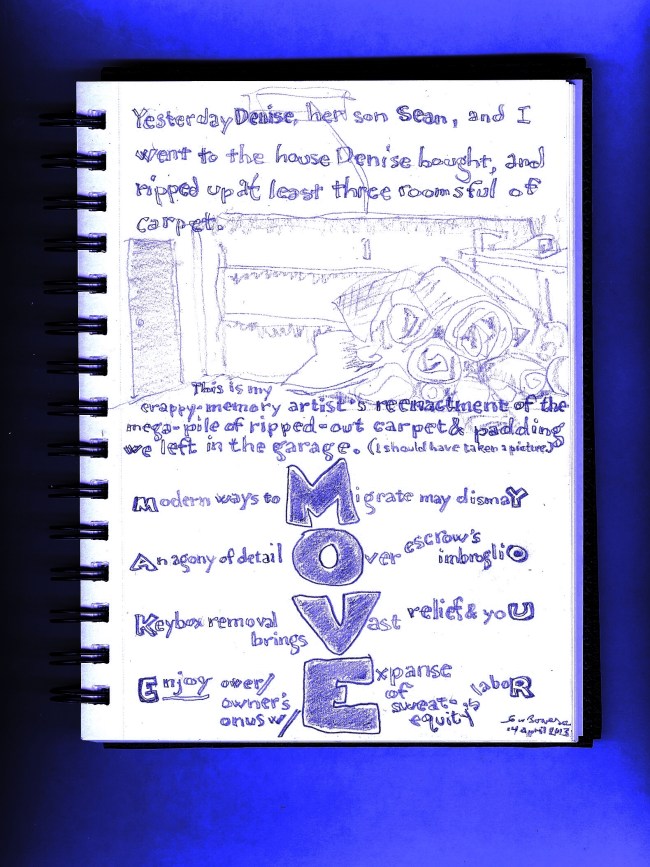 Yesterday Denise, her son Sean, and I
went to the house Denise bought, and
ripped up at least three roomsful of
carpet.
This is my
crappy-memory artist's reenactment of the
mega-pile of ripped-out carpet & padding
we left in the garage. (I should have taken a picture.)
Modern ways to Migrate may dismaY
An agony of detail Over escrow's imbrogliO
Keybox removal brings Vast relief & yoU
Enjoy over/owner's onus w/ Expanse of sweat-equity's laboR
14 April 2013